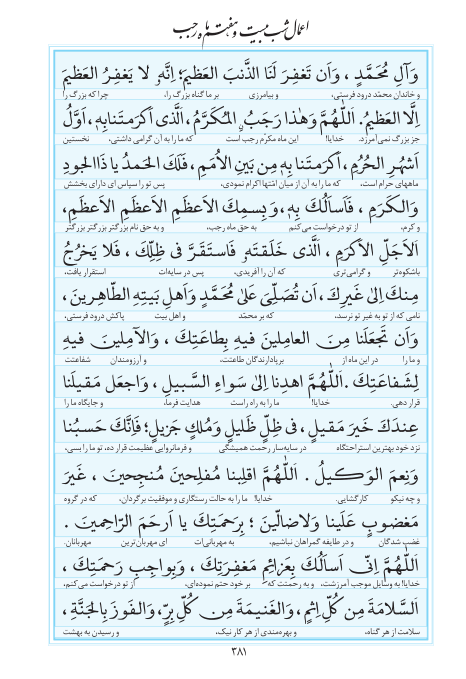 اعمال شب بیست و هفتم ماه رجب
وَآلِ مُحَمَّدٍ ، وَاَن تَغفِرَ لَنَا الذَّنبَ العَظیمَ؛ اِنَّهُ لا یَغفِرُ العَظیمَ
و خاندان محمّد درود فرستی، و بیامرزی بر ما گناه بزرگ را، چرا که بزرگ را
اِلَّا العَظیمُ. اَللّٰهُمَّ وَهٰذا رَجَبُ، المُکَرَّمُ، اَلَّذی اَکرَمتَنابِهِ، اَوَّلُ
جز بزرگ نمی‌آمرزد. خدایا! این ماه مکرّم رجب است که ما را به آن گرامی داشتی، نخستین
اَشهُرِ الحُرُمِ، اَکرَمتَنا بِهِ مِن بَینِ الاُمَمِ، فَلَکَ الحَمدُ یا ذَا الجودِ
ماههای حرام است، که ما را به آن از میان امّتها اکرام نمودی، پس تو را سپاس ای دارای بخشش
وَالکَرَمِ ، فَاَسأَلُکَ بِهِ، وَبِسمِکَ الاَعظَمِ الاَعظَمِ الاَعظَمِ،
و کرم، از تو درخواست می‌کنم به حق ماه رجب، و به حق نام بزرگتر بزرگتر بزرگتر
اَلاَجَلِّ الاَکرَمِ ، اَلَّذی خَلَقتَهُ، فَاستَقَرَّ فی ظِلِّکَ ، فَلا یَخرُجُ
باشکوه‌تر و گرامی‌تری که آن را آفریدی، پس در سایه‌ات استقرار یافت،
مِنکَ اِلیٰ غَیرِکَ، اَن تُصَلِّیَ عَلیٰ مُحَمَّدٍ وَاَهلِ بَیتِهِ الطّاهِرینَ،
نامی که از تو به غیر تو نرسد، که بر محمّد و اهل بیت پاکش درود فرستی،
وَاَن تَجعَلَنا مِنَ العامِلینَ فیهِ بِطاعَتِکَ ، وَالآمِلینَ فیهِ
و ما را در این ماه از برپادارندگان طاعتت، و آرزومندان شفاعتت
لِشَفاعَتِکَ . اَللّٰهُمَّ اهدِنا اِلیٰ سَواءِ السَّبیلِ ، وَاجعَل مَقیلَنا
قرار دهی. خدایا! ما را به راه راست هدایت فرما، و جایگاه ما را
عِندَکَ خَیرَ مَقیلٍ، فی ظِلٍّ ظَلیلٍ وَمُلکٍ جَزیلٍ؛ فَاِنَّکَ حَسبُنا
نزد خود بهترین استراحتگاه در سایه‌سار رحمت همیشگی و فرمانروایی عظیمت قرار ده، تو ما را بسی،
وَنِعمَ الوَکیلُ . اَللّٰهُمَّ اقلِبنا مُفلِحینَ مُنجِحینَ ، غَیرَ
و چه نیکو کارگشایی. خدایا! ما را به حالت رستگاری و موفقیت برگردان، که در گروه
مَغضوبٍ عَلَینا وَلاضالّینَ ؛ بِرَحمَتِکَ یا اَرحَمَ الرّاحِمینَ .
غضب شدگان و در طایفه گمراهان نباشیم، به مهربانی‌ات ای مهربان‌ترین مهربانان.
اَللّٰهُمَّ اِنّی اَسأَلُکَ بِعَزائِمِ مَغفِرَتِکَ ، وَبِواجِبِ رَحمَتِکَ ،
خدایا! به وسایل موجب آمرزشت، و به رحمتت که بر خود حتم نموده‌ای، از تو درخواست می‌کنم،
اَلسَّلامَةَ مِن کُلِّ اِثمٍ، وَالغَنیمَةَ مِن کُلِّ بِرٍّ، وَالفَوزَ بِالجَنَّةِ ،
سلامت از هر گناه، و بهره‌مندی از هر کار نیک، و رسیدن به بهشت
۳۸۱